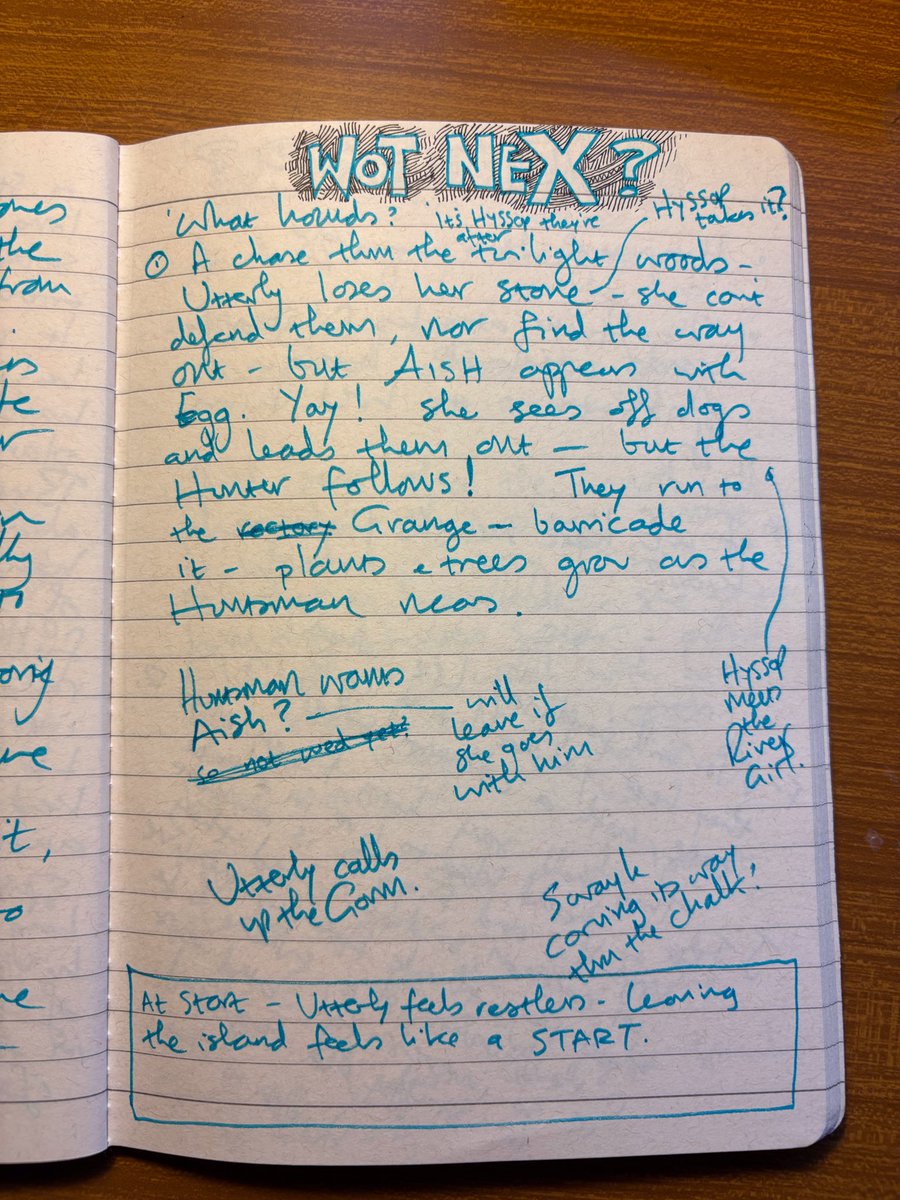 WOT NEX?
Hyssop
takes it?
'What hounds?'
It's Hyssop they're
after
① A chase thru the twilight woods –
Utterly loses her stone – she can't
defend them, nor find the way
out – but AISH appears with
Egg. Yay! She sees off dogs
and leads them out – but the
Hunter follows! They run to
the rectory Grange – barricade
it – plants & trees grow as the
Huntsman nears.
Huntsman wants
Aish?
so not weed yet?
will
leave if
she goes
with him
Hyssop
meets
the
River
Girl.
Utterly calls
up the Gorm.
coming its way
thru the chalk!
At START – Utterly feels restless – leaving
the island feels like a START.
ones
the
from
as
te
r
in
lly
to
ve
it,